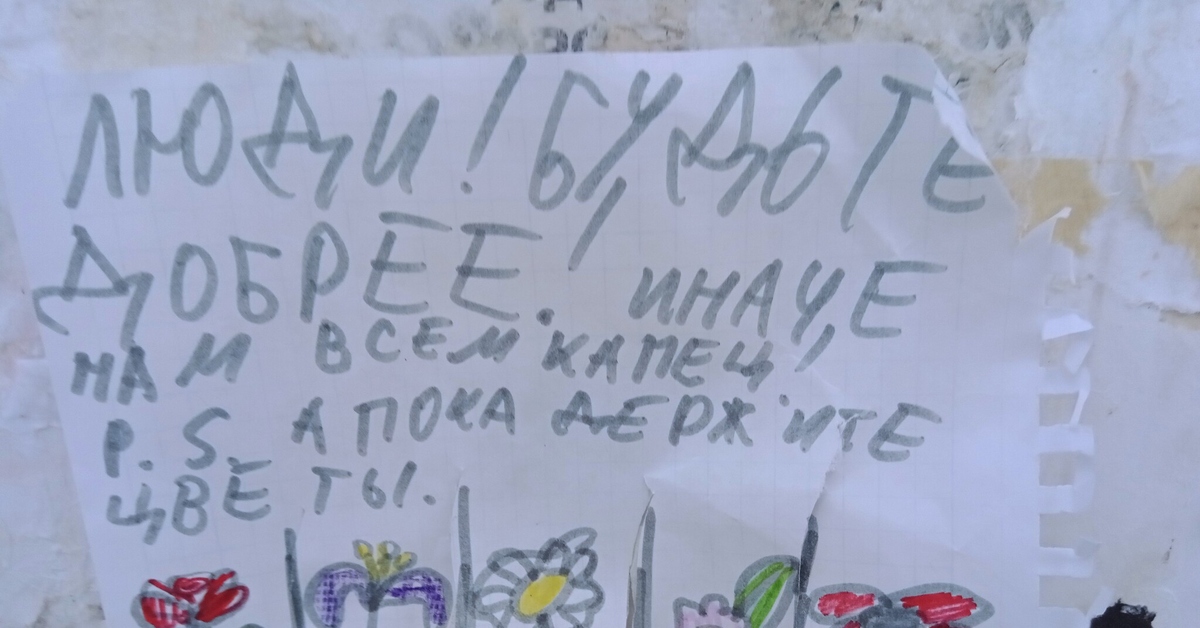 ЛЮДИ! БУДЬТЕ
ДОБРЕЕ. ИНАЧЕ
НАМ ВСЕМ КАПЕЦ!
P.S. А ПОКА ДЕРЖИТЕ
ЦВЕТЫ.